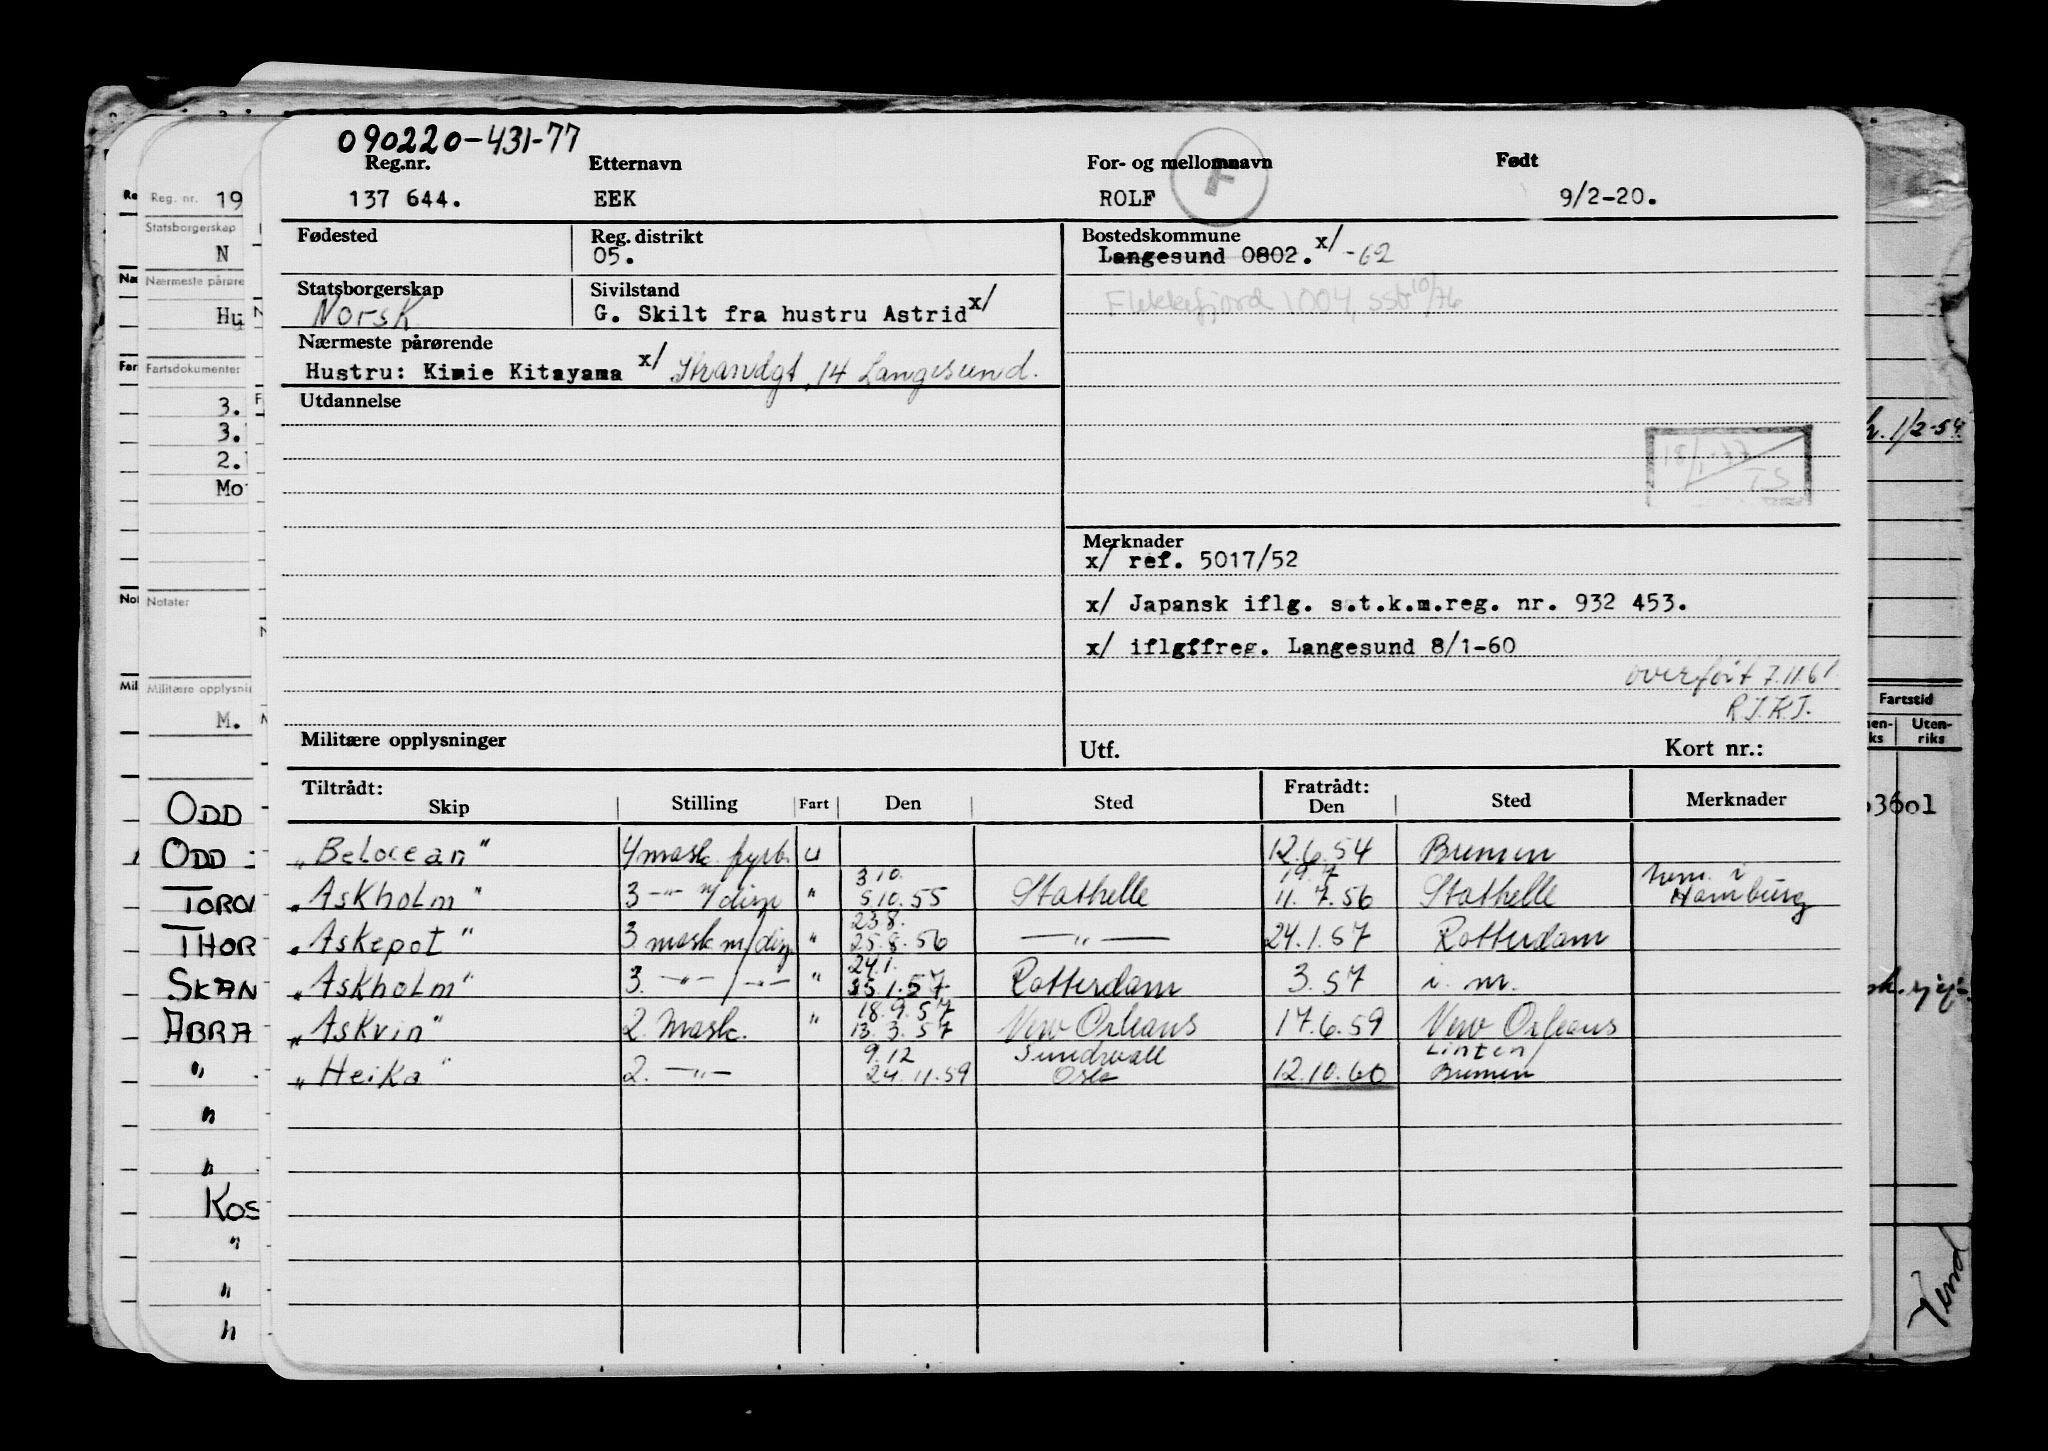 090220-431-77
Reg.nr. Etternavn For- og mellomnavn Født
137 644. EEK ROLF 9/2-20.
F
Fødested Reg. distrikt Bostedskommune
05. Langesund 0802. x/ -62
Statsborgerskap Sivilstand Flekkefjord 1004, ssb 10/76
Norsk G. Skilt fra hustru Astrid x/
Nærmeste pårørende
Hustru: Kimie Kitayama x/ Strandgt. 14 Langesund.
Utdannelse
18/1-77
TS
Merknader
x/ ref. 5017/52
x/ Japansk iflg. s.t.k.m.reg. nr. 932 453.
x/ iflgffreg. Langesund 8/1-60
overført 7.11.61.
Militære opplysninger Utf. Kort nr.:
Tiltrådt: Fratrådt:
Skip Stilling Fart Den Sted Den Sted Merknader
"Belocean" 4 mask. fyrb. u 12.6.54 Bremen
3.10. 19.7 hem. i
"Askholm" 3 -"- m/disp " 5.10.55 Stathelle 11.7.56 Stathelle Hamburg
23.8.
"Askepot" 3. mask m/disp " 25.8.56 -"- 24.1.57 Rotterdam
24.1.
"Askholm" 3. -"- / -"- " 25.1.57 Rotterdam 3.57 i. m.
18.9.57
"Askvin" 2. Mask. " 13.3.57 New Orleans 17.6.59 New Orleans
9.12 Sundsvall
"Heika" 2. -"- 24.11.59 Oslo 12.10.60 Bremen
Reg. nr. 19
Statsborgerskap
N
Nærmeste pårøre
Hu
Fartsdokumenter
3.
3.
2.
Mo
Notater
Militære opplysnin
M.
ODD
ODD
TORO
THOR
SKAN
ABRA
"
"
"
KOS
"
"
"
1/2-54
Fartstid
Uten-
riks